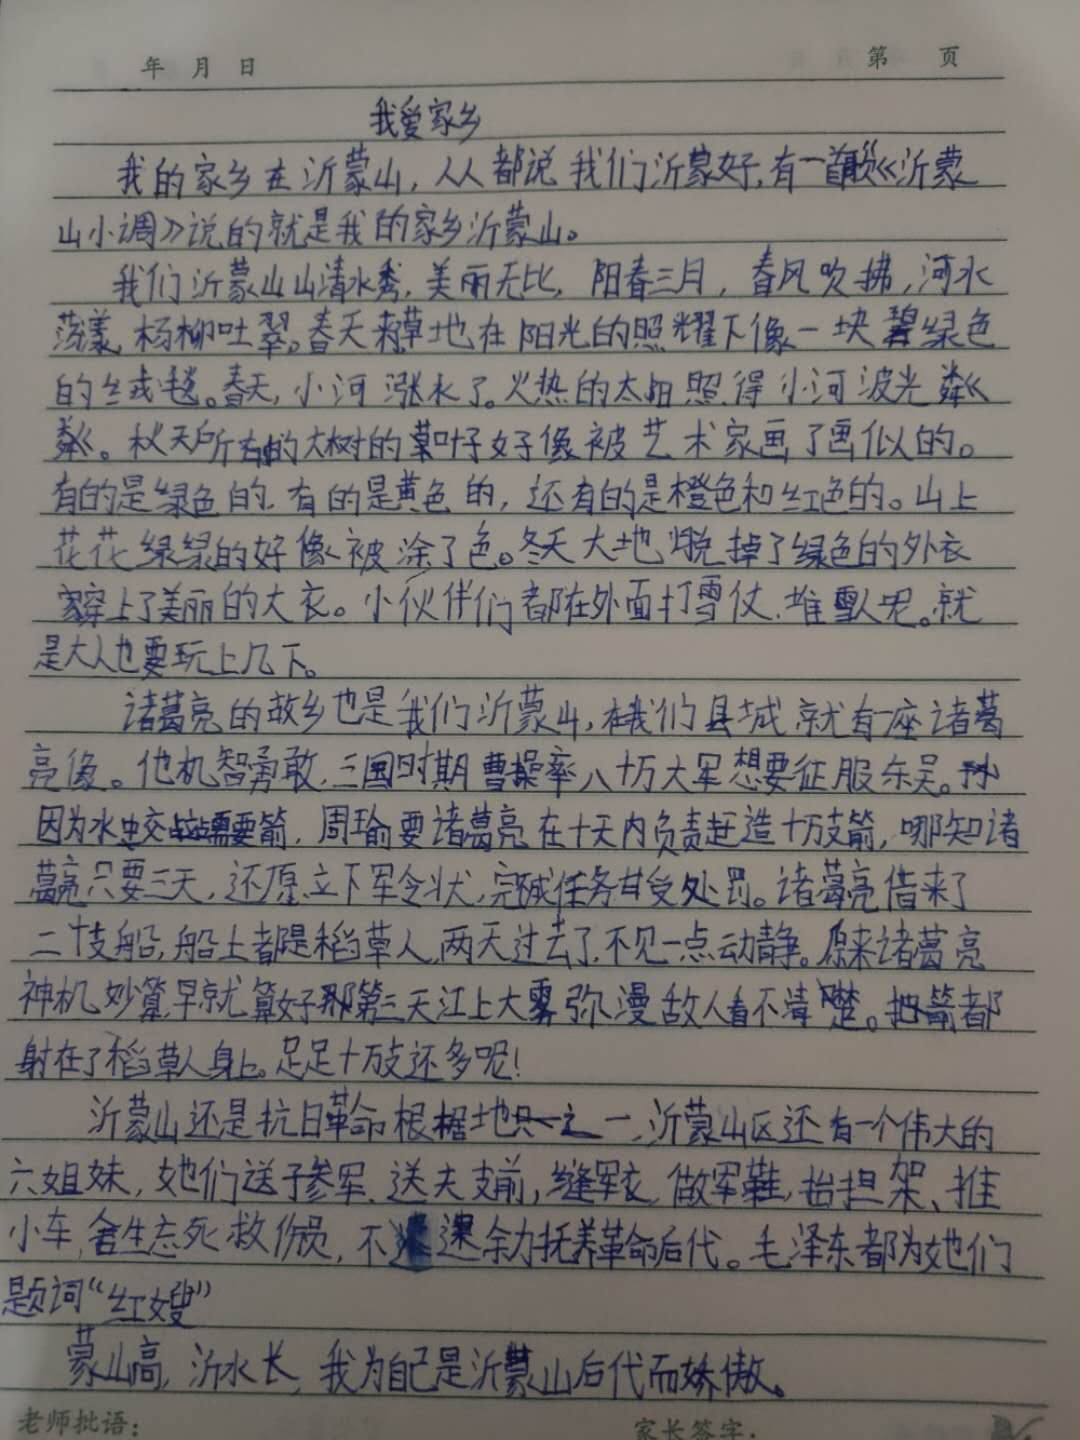 年 月 日 第 页
我爱家乡
我的家乡在沂蒙山，人人都说我们沂蒙好，有一首歌《沂蒙
山小调》说的就是我的家乡沂蒙山。
我们沂蒙山山清水秀，美丽无比，阳春三月，春风吹拂，河水
荡漾，杨柳吐翠。春天来草地在阳光的照耀下像一块碧绿色
的绒毯。春天，小河涨水了。火热的太阳照得小河波光粼
粼。秋天所有的大树的草叶子好像被艺术家画了画似的。
有的是绿色的，有的是黄色的，还有的是橙色和红色的。山上
花花绿绿的好像被涂了色。冬天大地脱掉了绿色的外衣
穿上了美丽的大衣。小伙伴们都在外面打雪仗，堆雪人呢。就
是大人也要玩上几下。
诸葛亮的故乡也是我们沂蒙山，在我们县城就有一座诸葛
亮像。他机智勇敢，三国时期曹操率八十万大军想要征服东吴。
因为水中交战需要箭，周瑜要诸葛亮在十天内负责赶造十万支箭，哪知诸
葛亮只要三天，还愿立下军令状，完成任务甘受处罚。诸葛亮借来了
二十支船，船上都是稻草人，两天过去了，不见一点动静。原来诸葛亮
神机妙算早就算好那第三天江上大雾弥漫敌人看不清楚。把箭都
射在了稻草人身上。足足十万支还多呢！
沂蒙山还是抗日革命根据地之一，沂蒙山区还有一个伟大的
六姐妹，她们送子参军、送夫支前，缝军衣，做军鞋，抬担架、推
小车，舍生忘死救伤员，不遗余力抚养革命后代。毛泽东都为她们
题词“红嫂”
蒙山高，沂水长，我为自己是沂蒙山后代而娇傲。
老师批语： 家长签字：